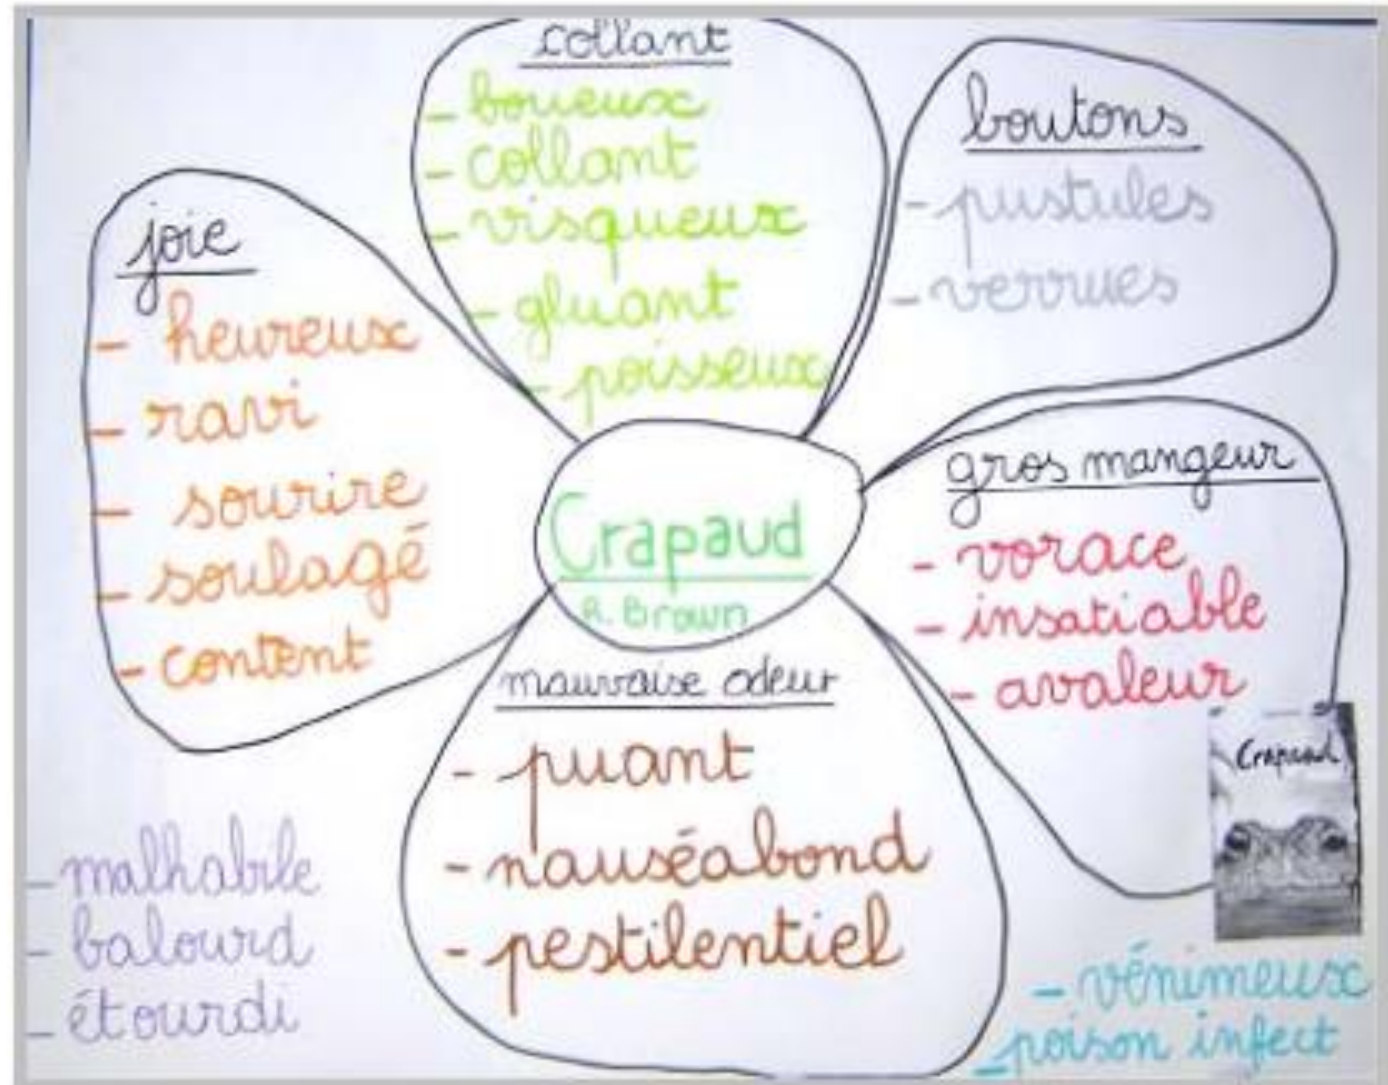 collant
- boueux
- collant
- visqueux
- gluant
- poisseux
boutons
- pustules
- verrues
joie
- heureux
- ravi
- sourire
- soulagé
- content
Crapaud
R. Brown
gros mangeur
- vorace
- insatiable
- avaleur
Crapaud
mauvaise odeur
- puant
- nauséabond
- pestilentiel
- malhabile
- balourd
- étourdi
- vénimeux
- poison infect